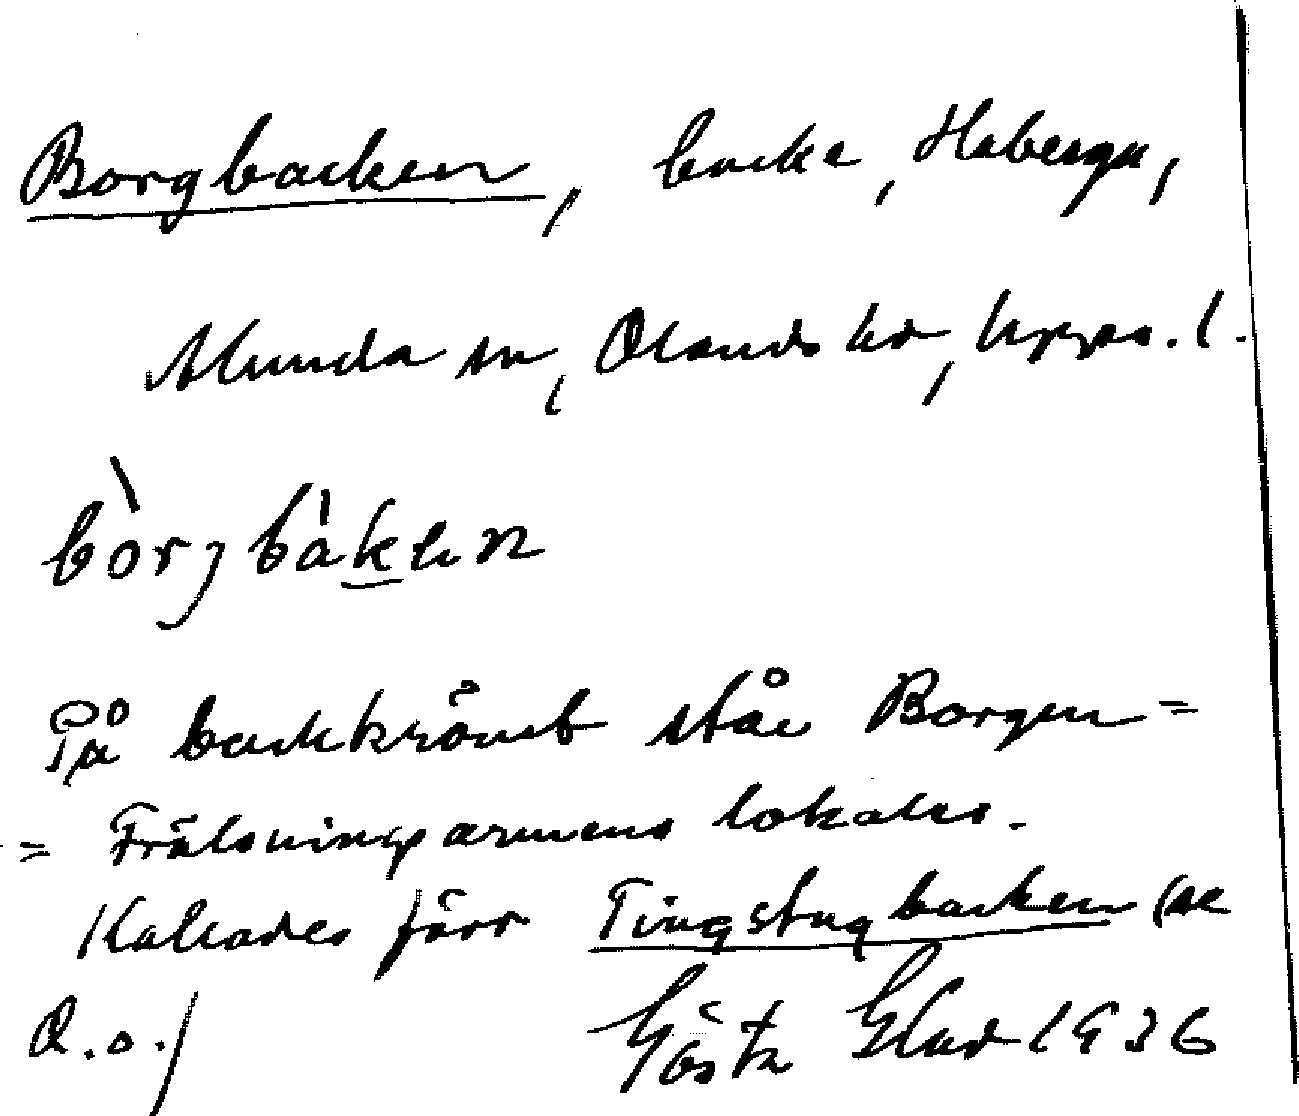 Borgbacken, backe, Haberga,
Alunda sn, Olands hd, Upps. l.
bòrjbàken
På backkrönet står Borgen =
= Frälsningsarmens lokaler.
Kallades förr Tingstugbacken (se
d.o.)
Gösta Elud 1936